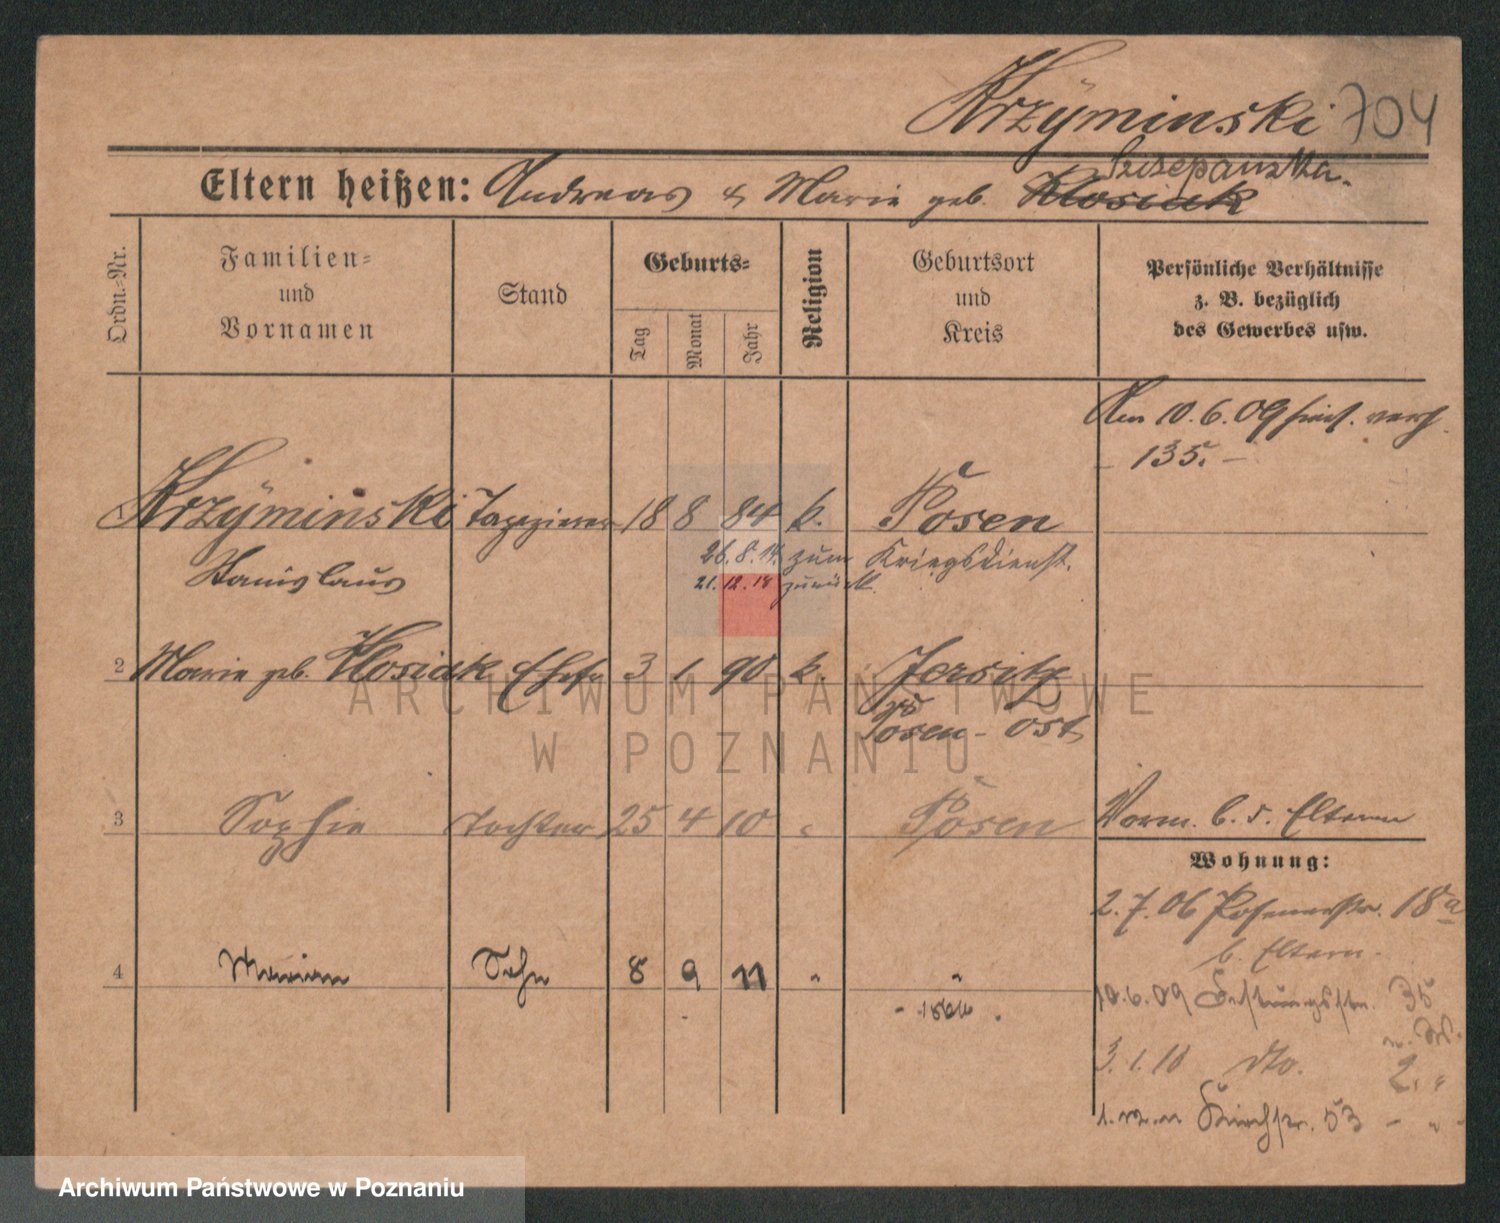 Krzyminski 704
Szczepanska.
Eltern heißen: Andreas & Marie geb. Klosiak
Ordn.-Nr.
Familien-
und
Vornamen
Stand
Geburts-
Tag
Monat
Jahr
Religion
Geburtsort
und
Kreis
Persönliche Verhältnisse
z. B. bezüglich
des Gewerbes usw.
Am 10.6.09 hier verh.
- 135. -
1 Krzyminski Tapezierer 18 8 84 k. Posen
Stanislaus
26.8.14. zum Kriegsdienst.
21.12.18 zurück
2 Marie geb. Klosiak Ehefr 3 1 90 k. Jersitz
Posen-Ost
3 Sophie Tochter 25 4 10 " Posen
Vorm. b. d. Eltern
Wohnung:
2.7.06 Posenerstr. 18a
b. Eltern.
4 Marian Sohn 8 9 11 " "
10.6.09 Festungsstr. 35
3.1.10 dto. 2. "
Kirchstr. 53 - " "
ARCHIWUM PAŃSTWOWE
W POZNANIU
Archiwum Państwowe w Poznaniu